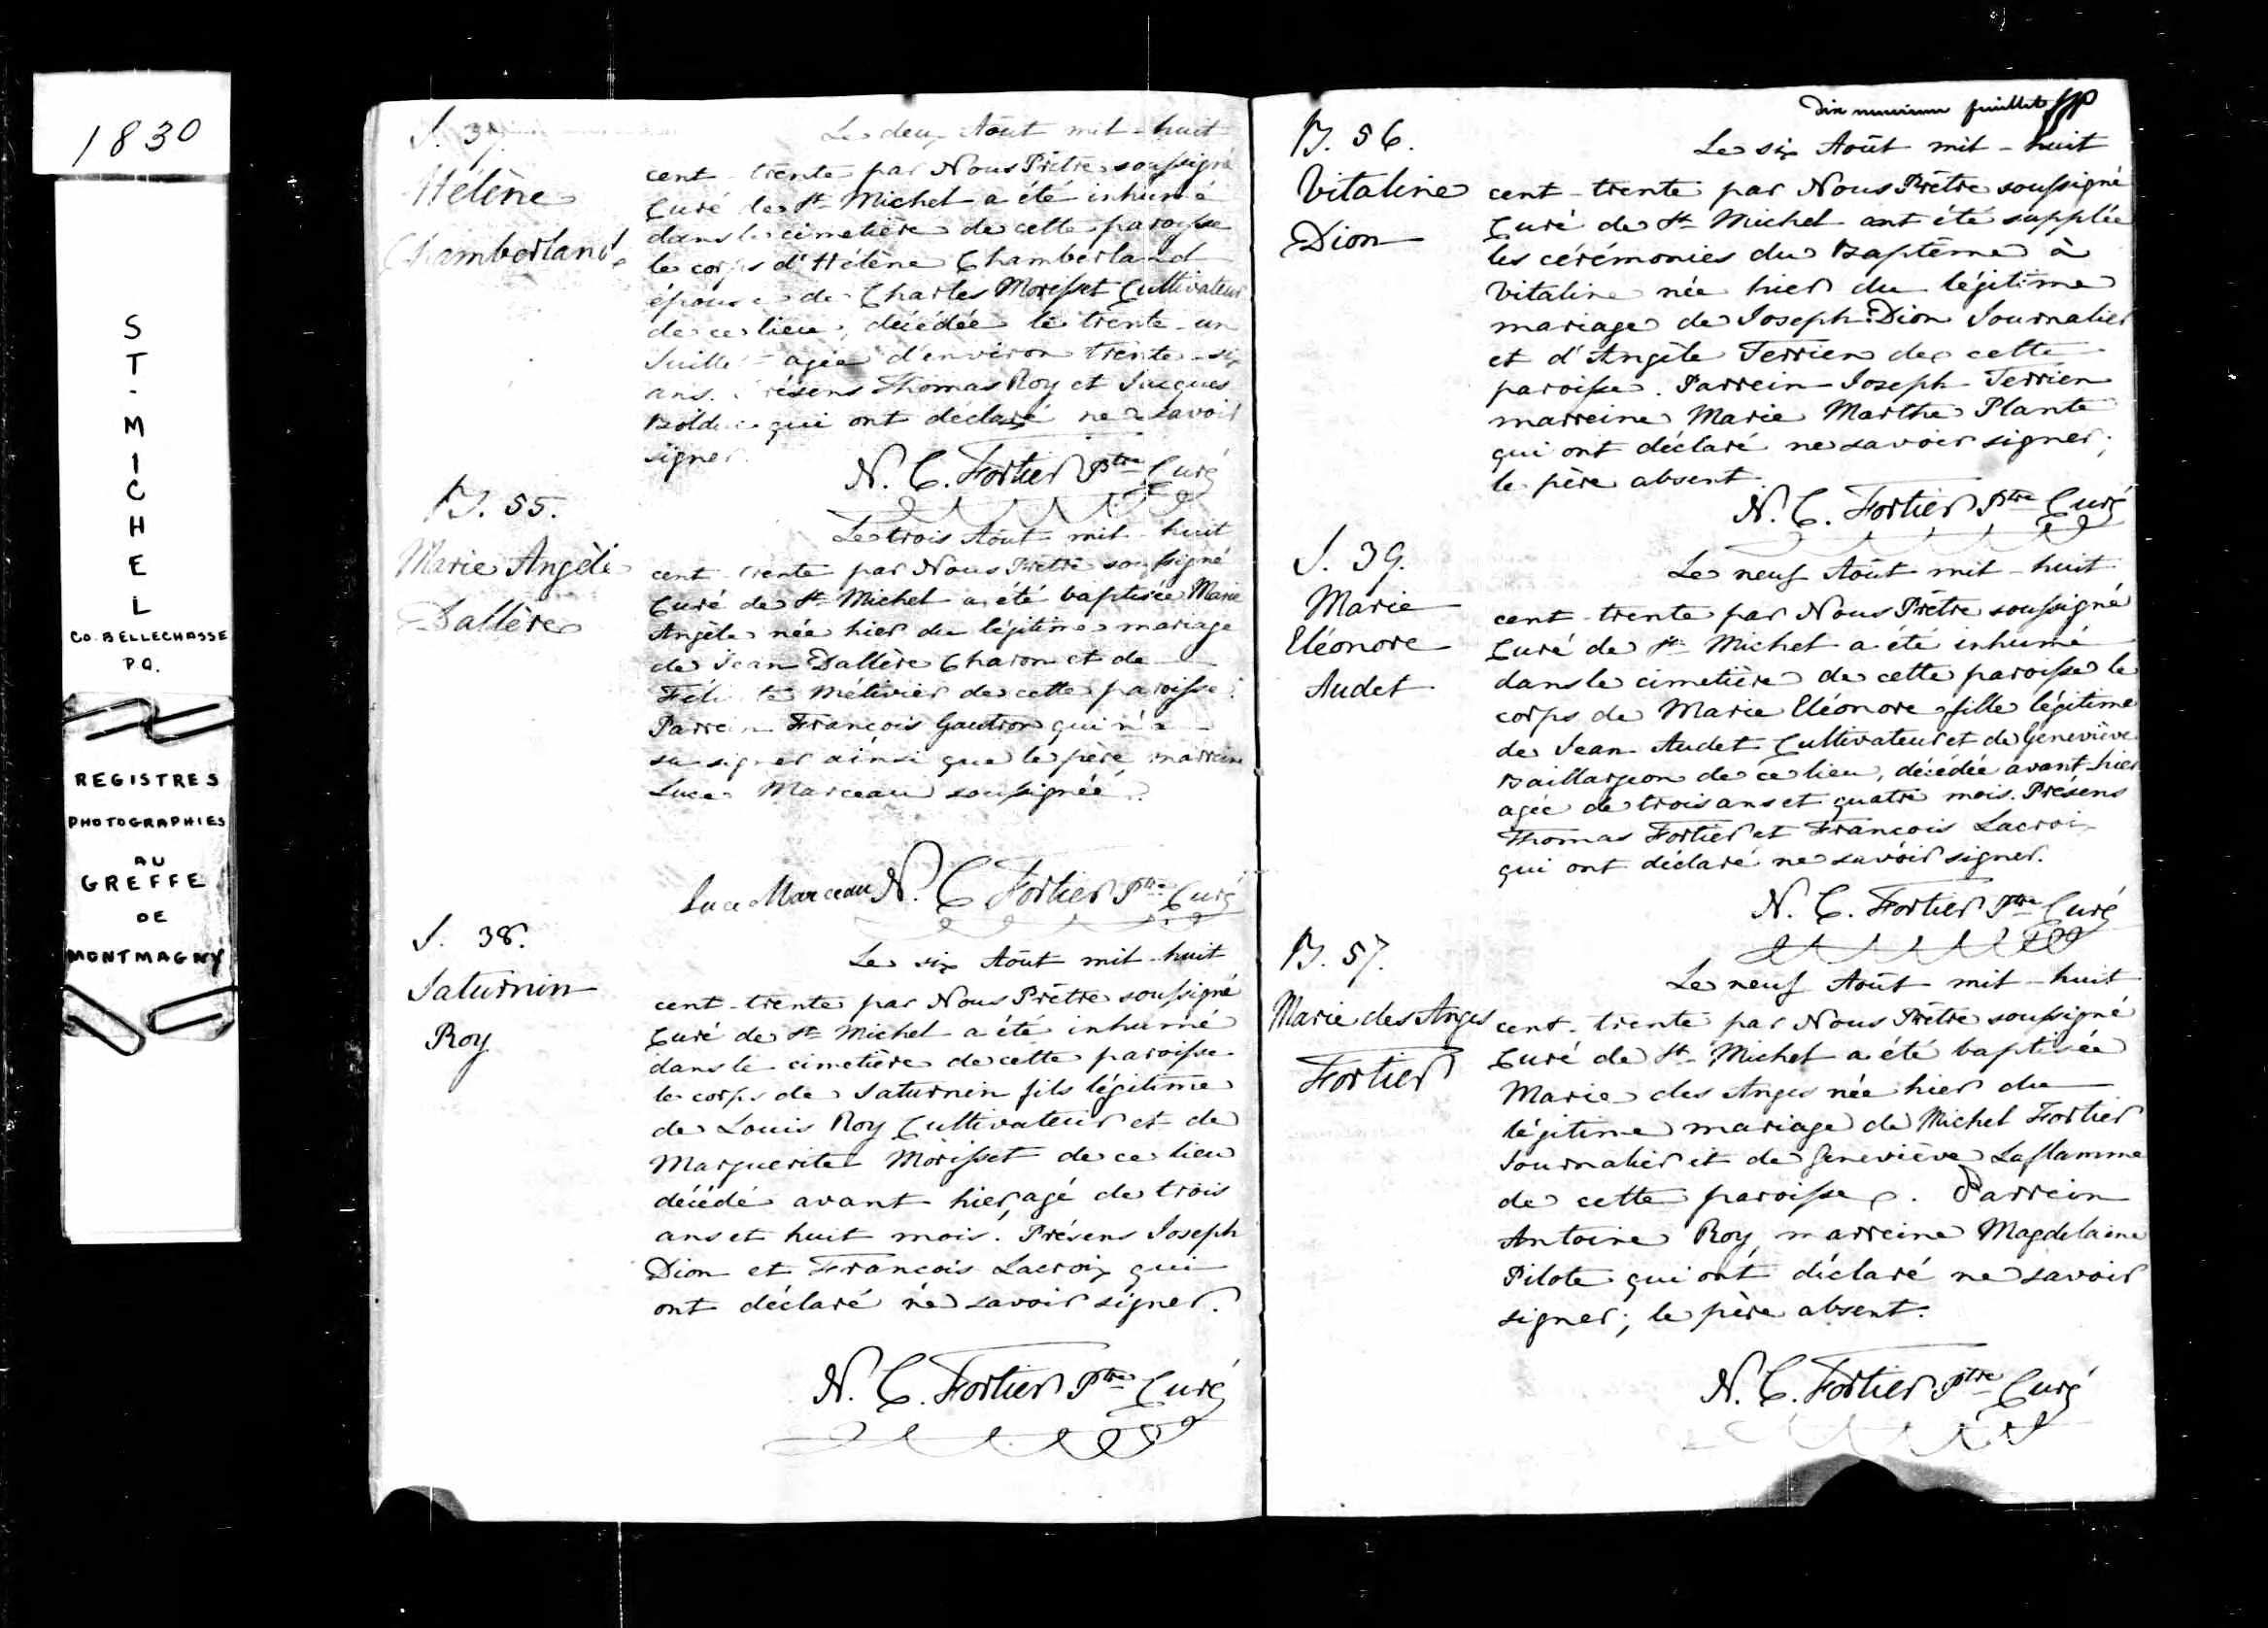 1830
ST-MICHEL
CO. BELLECHASSE
P.Q.
REGISTRES
PHOTOGRAPHIES
AU
GREFFE
DE
MONTMAGNY
S. 37.
Hélène
Chamberland
Le deux Août mil-huit
cent-trente par Nous Prêtre soussigné
Curé de St Michel a été inhumé
dans le cimetière de cette paroisse
le corps d'Hélène Chamberland
épouse de Charles Morisset Cultivateur
de ce lieu, décédée le trente-un
Juillet agée d'environ trente-six
ans. Présens Thomas Roy et Jacques
qui ont déclaré ne savoir
signer.
N. C. Fortier Ptre Curé
B. 55.
Marie Angèle
Dallère
Le trois Août mil-huit
cent-trente par Nous Prêtre soussigné
Curé de St Michel a été baptisée Marie
Angèle née hier du légitime mariage
de Jean Dallère Charon et de
Félicité Métivier de cette paroisse.
Parrein François Gautron qui n'a
su signer ainsi que le père, marreine
Luce Marceau soussignée.
Luce Marceau N. C. Fortier Ptre Curé
S. 38.
Saturnin
Roy
Le six Août mil-huit
cent-trente par Nous Prêtre soussigné
Curé de St Michel a été inhumé
dans le cimetière de cette paroisse
le corps de Saturnin fils légitime
de Louis Roy Cultivateur et de
Marguerite Morisset de ce lieu
décédé avant hier, agé de trois
ans et huit mois. Présens Joseph
Dion et François Lacroix qui
ont déclaré ne savoir signer.
N. C. Fortier Ptre Curé
feuillet
B. 56.
Vitaline
Dion
Le six Août mil-huit
cent-trente par Nous Prêtre soussigné
Curé de St Michel ont été supplée
les cérémonies du Baptême à
Vitaline née hier du légitime
mariage de Joseph Dion Journalier
et d'Angèle Terrien de cette
paroisse. Parrein Joseph Terrien
marreine Marie Marthe Plante
qui ont déclaré ne savoir signer;
le père absent.
N. C. Fortier Ptre Curé
S. 39.
Marie
Eléonore
Audet
Le neuf Août mil-huit
cent-trente par Nous Prêtre soussigné
Curé de St Michel a été inhumé
dans le cimetière de cette paroisse le
corps de Marie Eléonore fille légitime
de Jean Audet Cultivateur et de Geneviève
Baillargeon de ce lieu, décédée avant-hier
agée de trois ans et quatre mois. Présens
Thomas Fortier et François Lacroix
qui ont déclaré ne savoir signer.
N. C. Fortier Ptre Curé
B. 57.
Marie des Anges
Fortier
Le neuf Août mil-huit
cent-trente par Nous Prêtre soussigné
Curé de St Michel a été baptisée
Marie des Anges née hier du
légitime mariage de Michel Fortier
Journalier et de Geneviève Laflamme
de cette paroisse. Parrein
Antoine Roy, marreine Magdelaine
Pilote qui ont déclaré ne savoir
signer; le père absent.
N. C. Fortier Ptre Curé